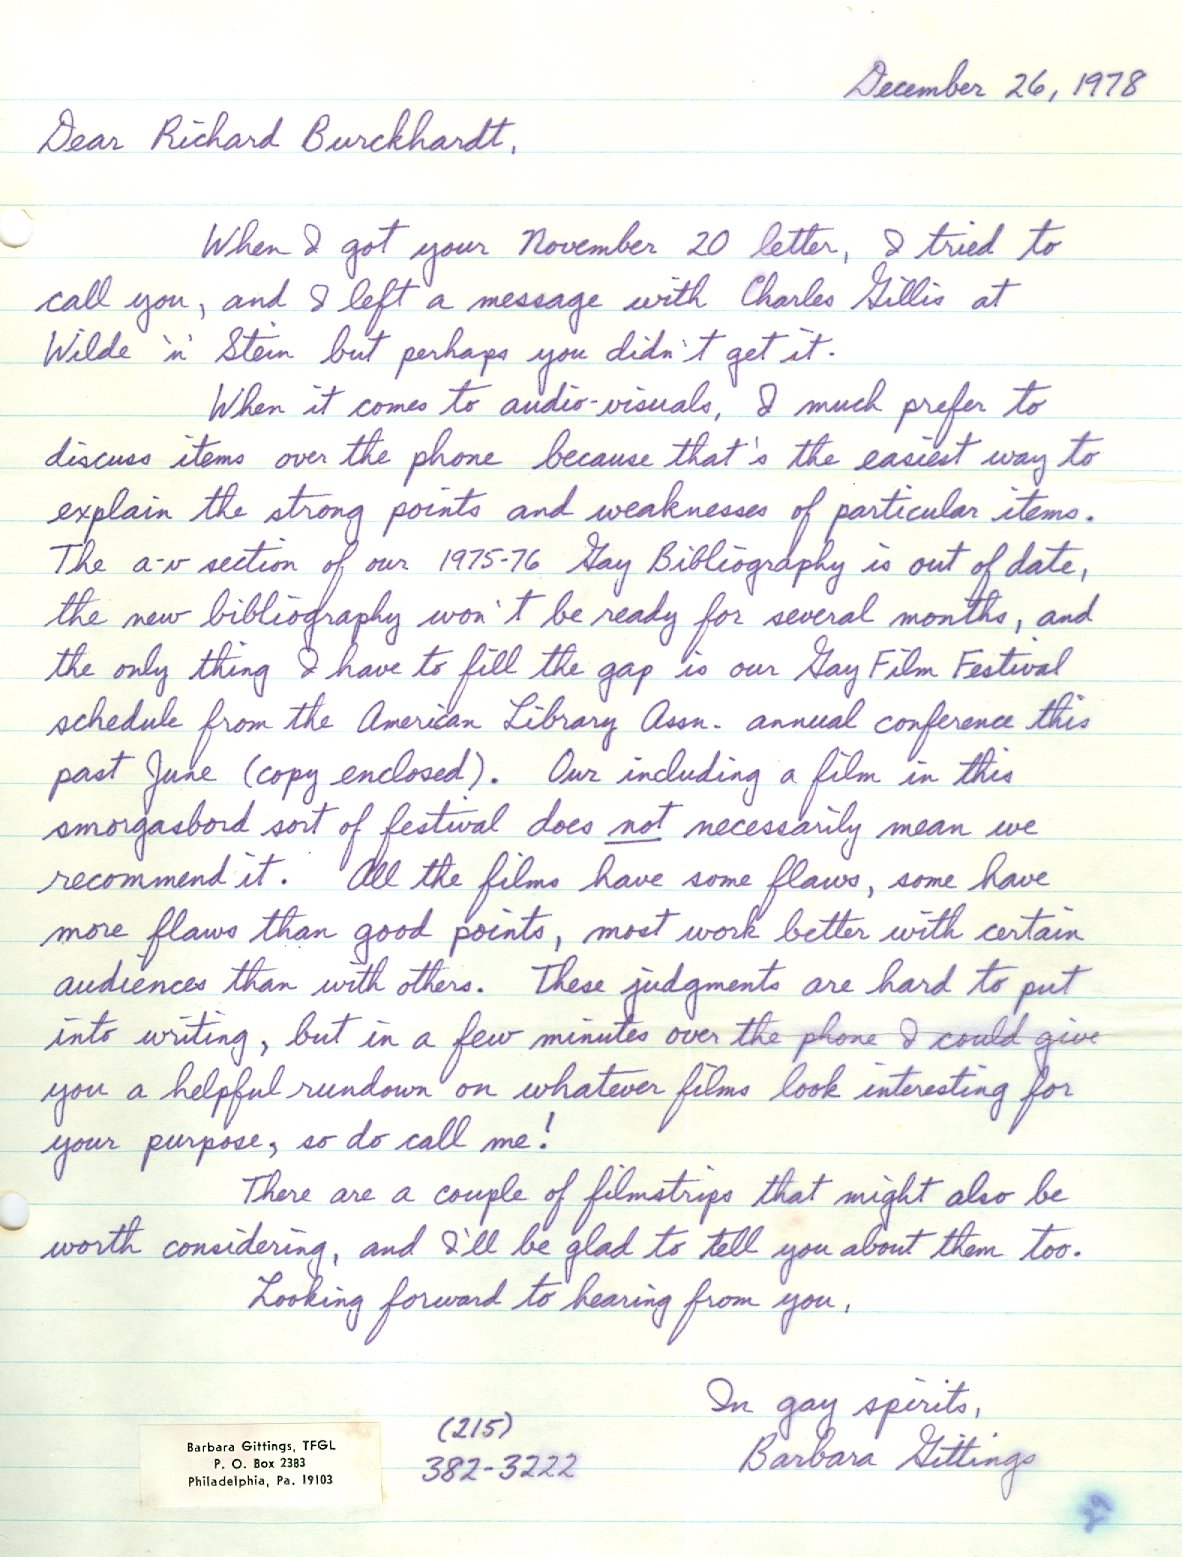 December 26, 1978
Dear Richard Burckhardt,
When I got your November 20 letter, I tried to
call you, and I left a message with Charles Gillis at
Wilde 'n' Stein but perhaps you didn't get it.
When it comes to audio-visuals, I much prefer to
discuss items over the phone because that's the easiest way to
explain the strong points and weaknesses of particular items.
The a-v section of our 1975-76 Gay Bibliography is out of date,
the new bibliography won't be ready for several months, and
the only thing I have to fill the gap is our Gay Film Festival
schedule from the American Library Assn. annual conference this
past June (copy enclosed). Our including a film in this
smorgasbord sort of festival does not necessarily mean we
recommend it. All the films have some flaws, some have
more flaws than good points, most work better with certain
audiences than with others. These judgments are hard to put
into writing, but in a few minutes over the phone I could give
you a helpful rundown on whatever films look interesting for
your purpose, so do call me!
There are a couple of filmstrips that might also be
worth considering, and I'll be glad to tell you about them too.
Looking forward to hearing from you,
In gay spirits,
Barbara Gittings
(215)
382-3222
Barbara Gittings, TFGL
P. O. Box 2383
Philadelphia, Pa. 19103
29